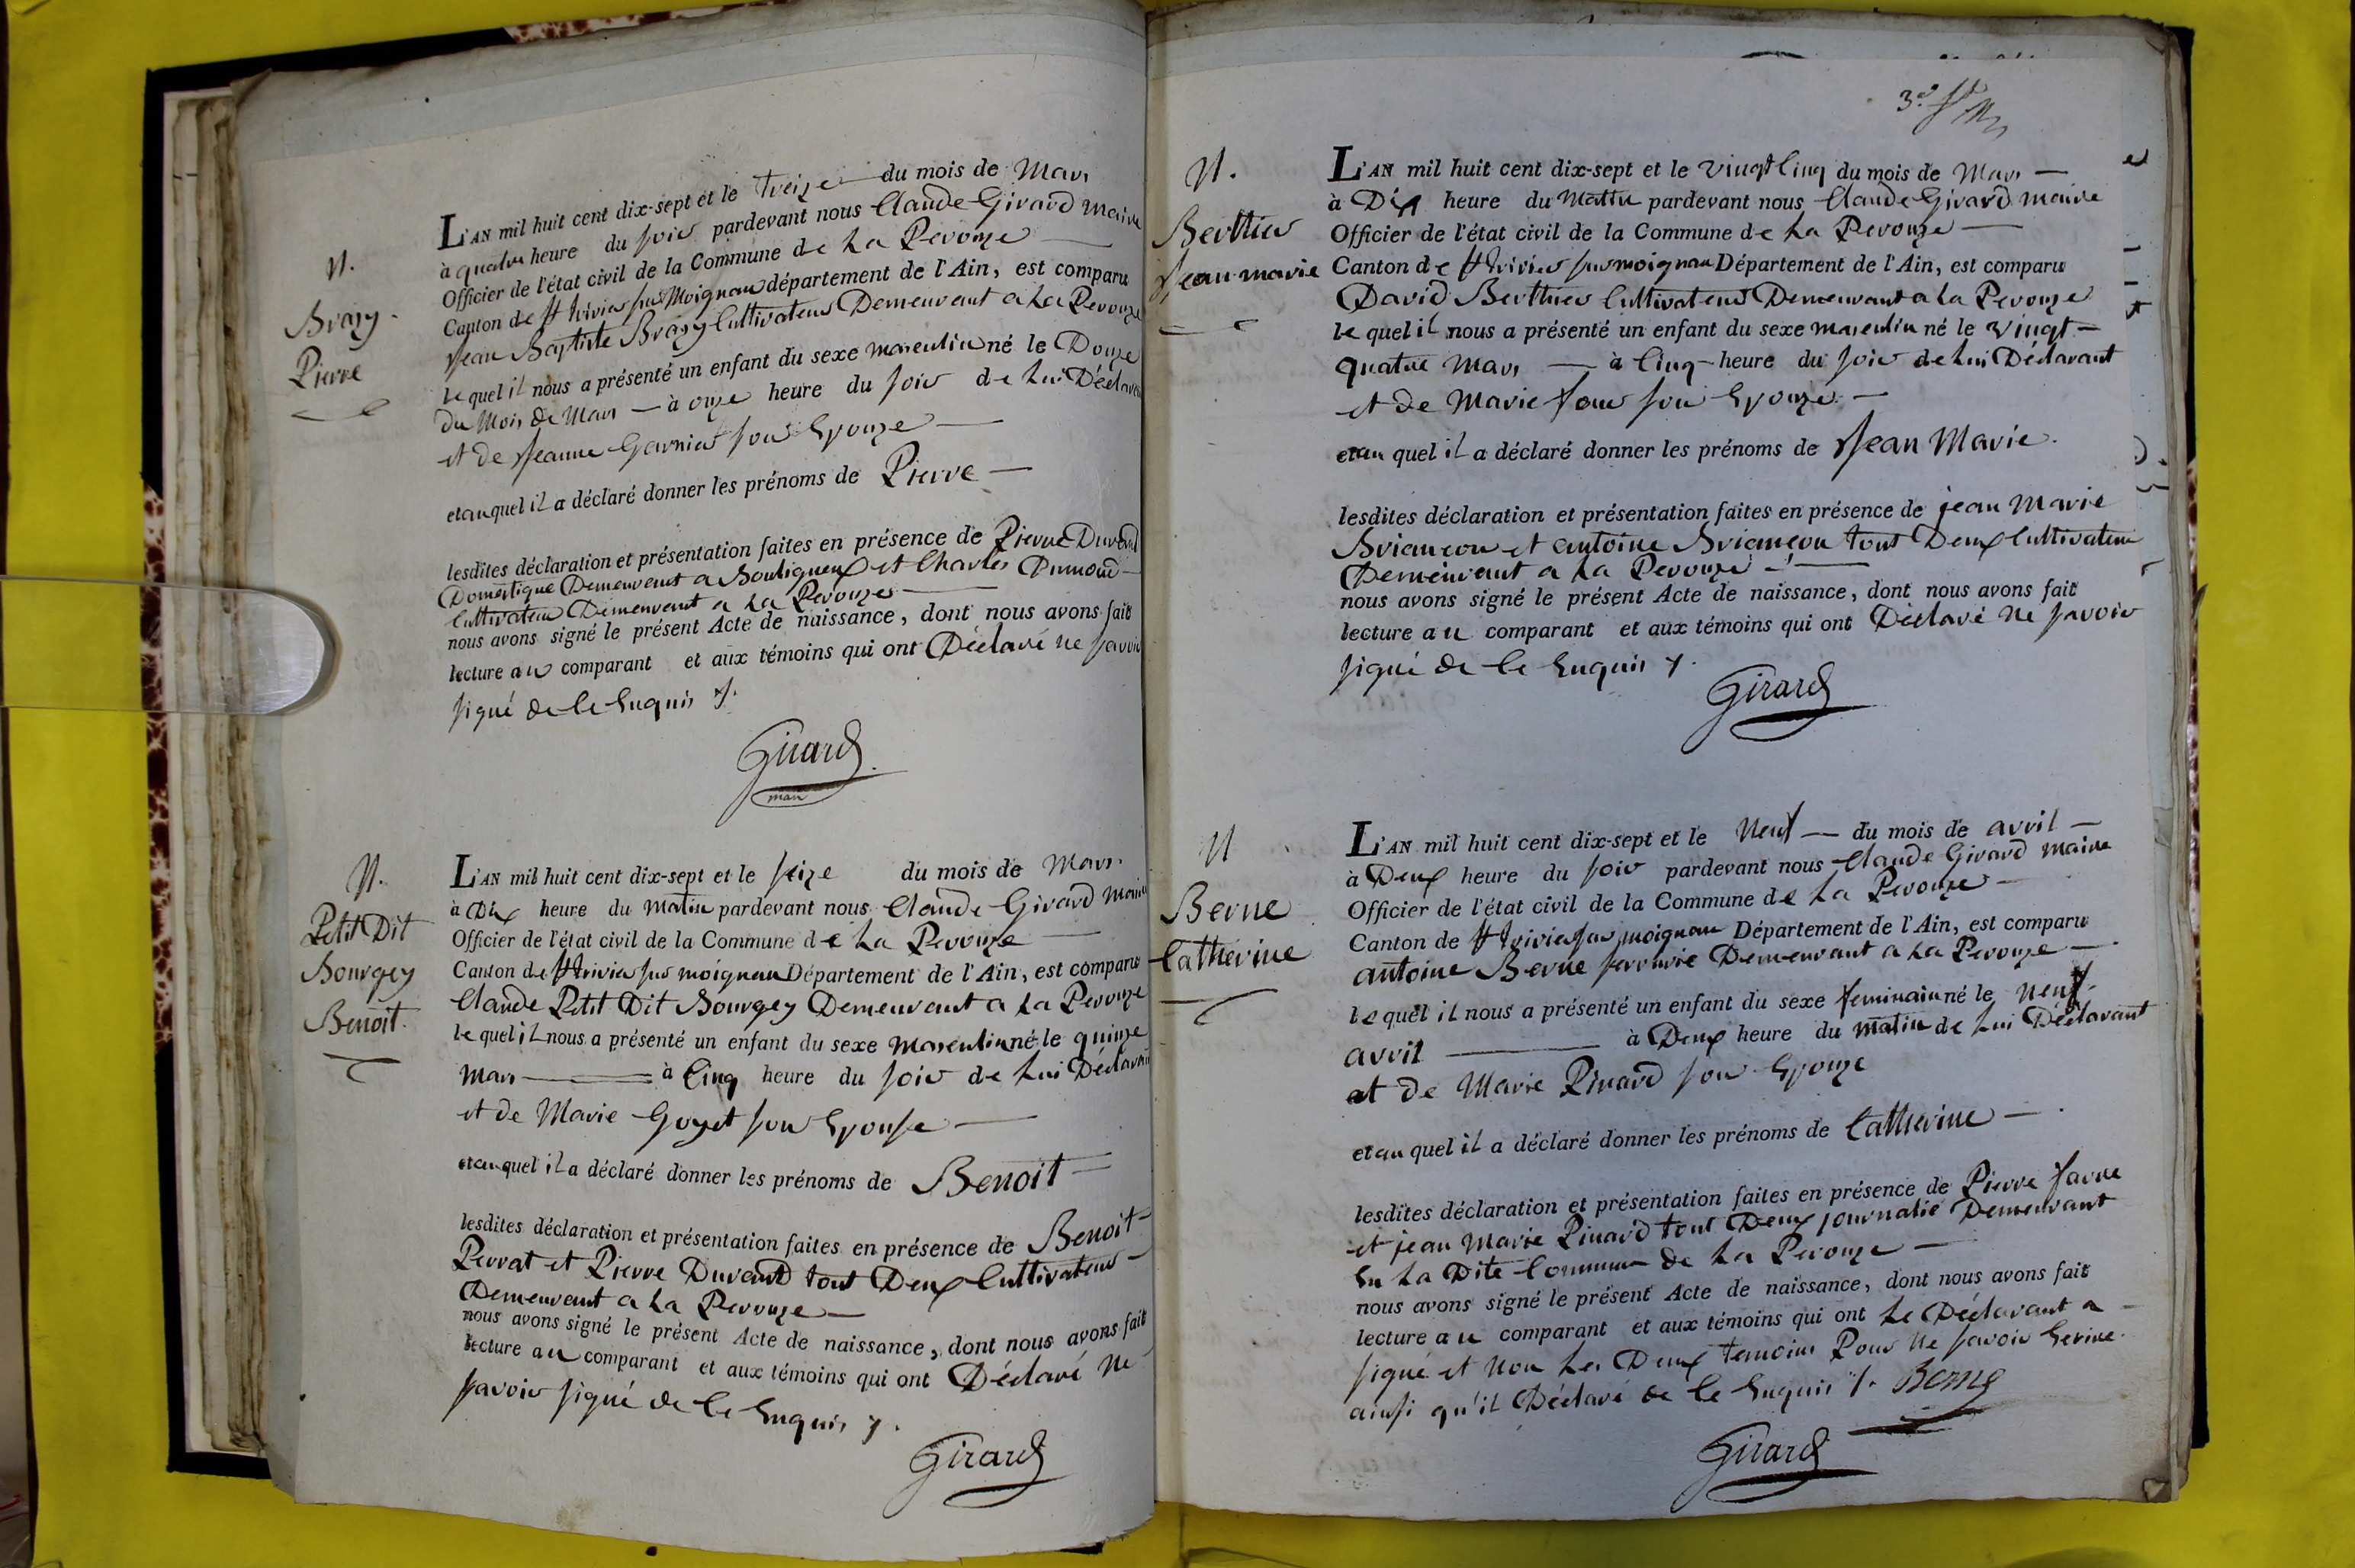 N.
Brazy.
Pierre
L'AN mil huit cent dix-sept et le treize du mois de Mars
à quatre heure du soir pardevant nous Claude Girard maire
Officier de l'état civil de la Commune de La Perouze
Canton de St trivier sur Moignan département de l'Ain, est comparu
Jean Baptiste Brazy Cultivateur Demeurant a La Perouze
lequel il nous a présenté un enfant du sexe masculin né le Douze
du Mois de Mars — à onze heure du soir de lui Déclarant
et de Jeanne Garnier son Epouze
et au quel il a déclaré donner les prénoms de Pierre
lesdites déclaration et présentation faites en présence de Pierre Durand
Domestique Demeurant a Bouligneux et Charles Dumond
Cultivateur Demeurant a La Perouze
nous avons signé le présent Acte de naissance, dont nous avons fait
lecture au comparant et aux témoins qui ont Déclaré ne savoir
signé de ce Enquis
Girard
maire
N.
Petit Dit
Bourgey
Benoit.
L'AN mil huit cent dix-sept et le seize du mois de Mars.
à Dix heure du matin pardevant nous Claude Girard Maire
Officier de l'état civil de la Commune de La Perouze
Canton de St trivier sur moignan Département de l'Ain, est comparu
Claude Petit Dit Bourgey Demeurant a La Perouze
lequel il nous a présenté un enfant du sexe masculin né le quinze
Mars — à Cinq heure du soir de lui Déclarant
et de Marie Goyet son Epouse
et au quel il a déclaré donner les prénoms de Benoit
lesdites déclaration et présentation faites en présence de Benoit
Perrat et Pierre Durand tout Deux Cultivateur
Demeurant a La Perouze
nous avons signé le présent Acte de naissance, dont nous avons fait
lecture au comparant et aux témoins qui ont Déclaré Ne
savoir signé de ce Enquis
Girard
3e
N.
Berthier
Jean marie
L'AN mil huit cent dix-sept et le vingt Cinq du mois de Mars —
à Dix heure du Matin pardevant nous Claude Girard maire
Officier de l'état civil de la Commune de La Perouze
Canton de St trivier sur moignan Département de l'Ain, est comparu
David Berthier Cultivateur Demeurant a La Perouze
lequel il nous a présenté un enfant du sexe masculin né le vingt —
quatre Mars — à Cinq heure du soir de lui Déclarant
et de Marie son Epouze —
et au quel il a déclaré donner les prénoms de Jean Marie.
lesdites déclaration et présentation faites en présence de jean Marie
Briançon et antoine Briançon tout Deux Cultivateur
Demeurant a La Perouze
nous avons signé le présent Acte de naissance, dont nous avons fait
lecture au comparant et aux témoins qui ont Déclaré Ne savoir
signé de ce Enquis
Girard
N
Berne
Catherine
L'AN mil huit cent dix-sept et le Neuf — du mois de avril —
à Deux heure du soir pardevant nous Claude Girard maire
Officier de l'état civil de la Commune de La Perouze
Canton de St trivier sur moignan Département de l'Ain, est comparu
antoine Berne Demeurant a La Perouze
lequel il nous a présenté un enfant du sexe feminain né le neuf.
avril — à Deux heure du matin de lui Déclarant
et de Marie Pinard son Epouze
et au quel il a déclaré donner les prénoms de Catherine
lesdites déclaration et présentation faites en présence de Pierre favre
et jean Marie Pinard tout Deux journalié Demeurant
En La Dite Commune de La Perouze
nous avons signé le présent Acte de naissance, dont nous avons fait
lecture au comparant et aux témoins qui ont Le Déclarant a
signé et Non Les Deux temoins Pour Ne savoir Ecrire.
ainsi qu'il Déclaré de ce Enquis Berne
Girard